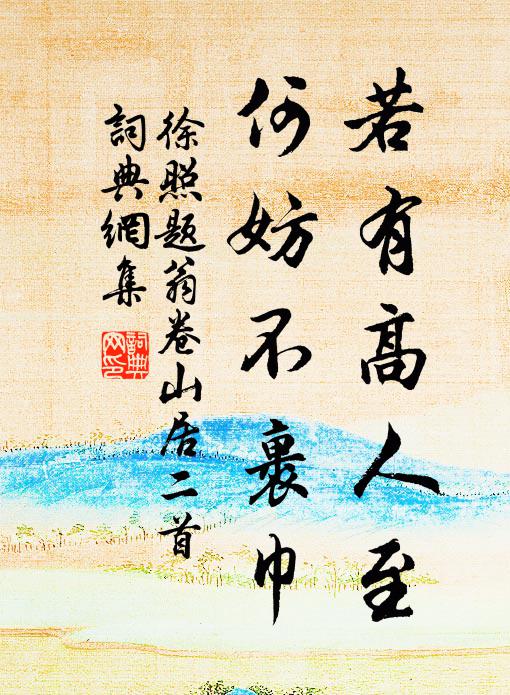 若有高人至
何妨不裹巾
徐照题翁卷山居二首
詞典網集
詞典网印